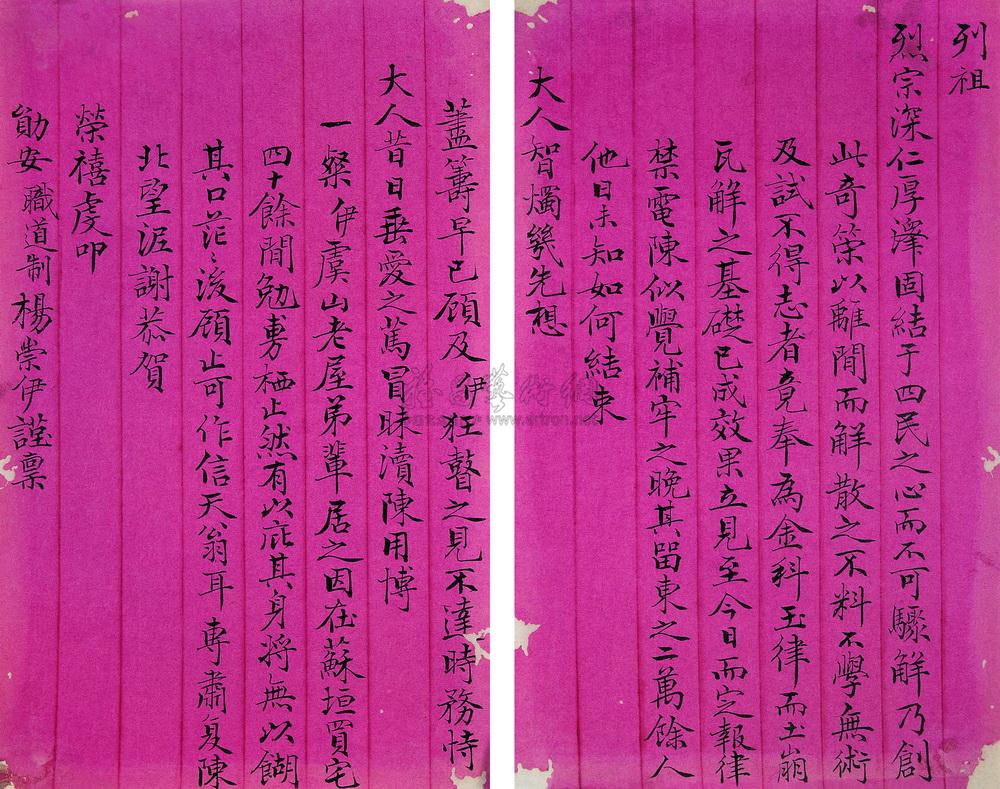 列祖
烈宗深仁厚澤固結于四民之心而不可驟解乃創
此奇策以離間而解散之不料不學無術
及試不得志者竟奉為金科玉律而土崩
瓦解之基礎已成效果立見至今日而定報律
禁電陳似覺補牢之晚其留東之二萬餘人
他日未知如何結束
大人智燭幾先想
藎籌早已顧及伊狂瞽之見不達時務恃
大人昔日垂愛之篤冒昧瀆陳用博
一粲伊虞山老屋弟輩居之因在蘇垣買宅
四十餘間勉勇栖止然有以庇其身將無以餬
其口茫〻後顧止可作信天翁耳專肅复陳
北望泥謝恭賀
榮禧虔叩
勛安職道制楊崇伊謹稟